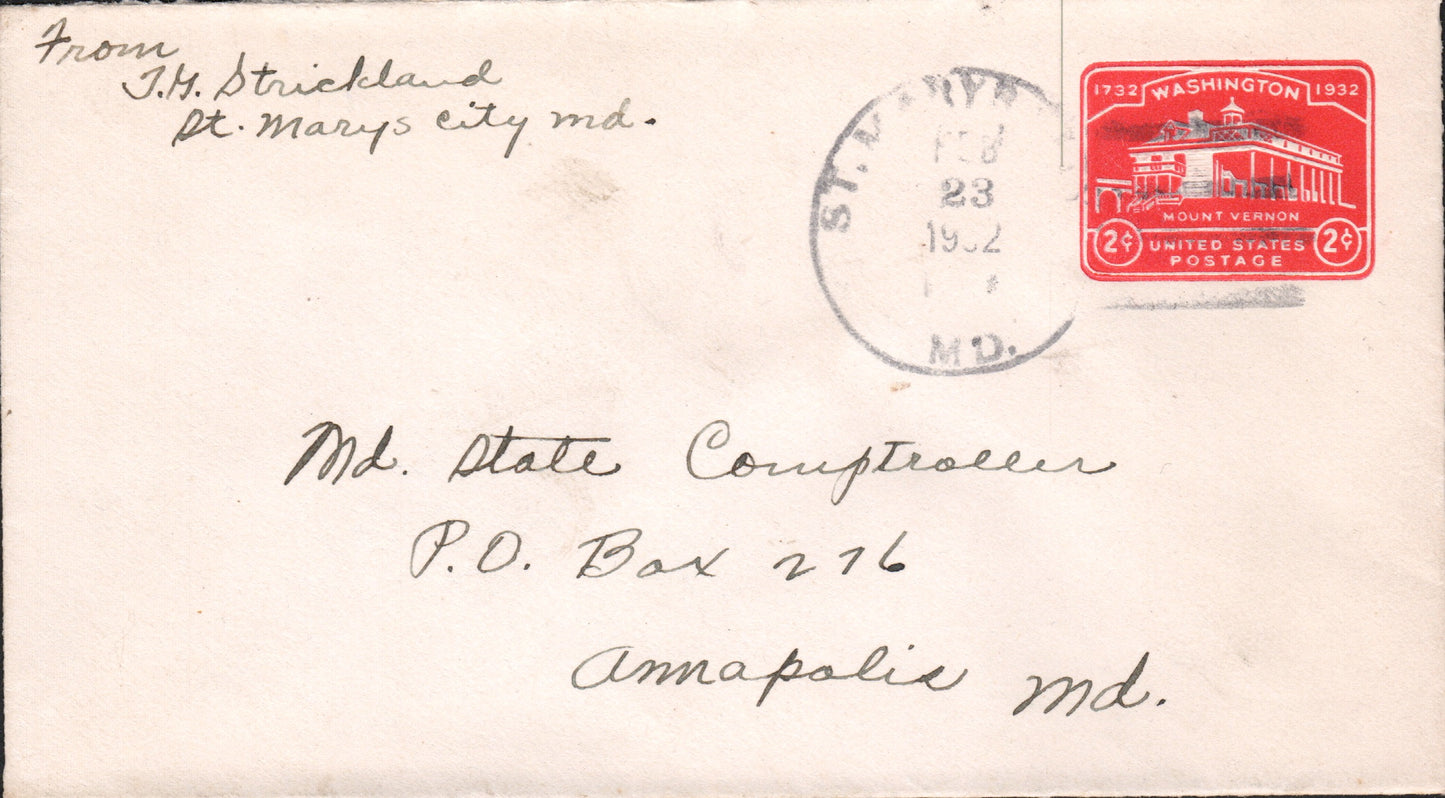 From
T.G. Strickland
St. Marys City Md.
ST. MARYS
FEB
23
1932
MD.
1732 WASHINGTON 1932
MOUNT VERNON
2¢ UNITED STATES 2¢
POSTAGE
Md. State Comptroller
P.O. Box 276
Annapolis Md.